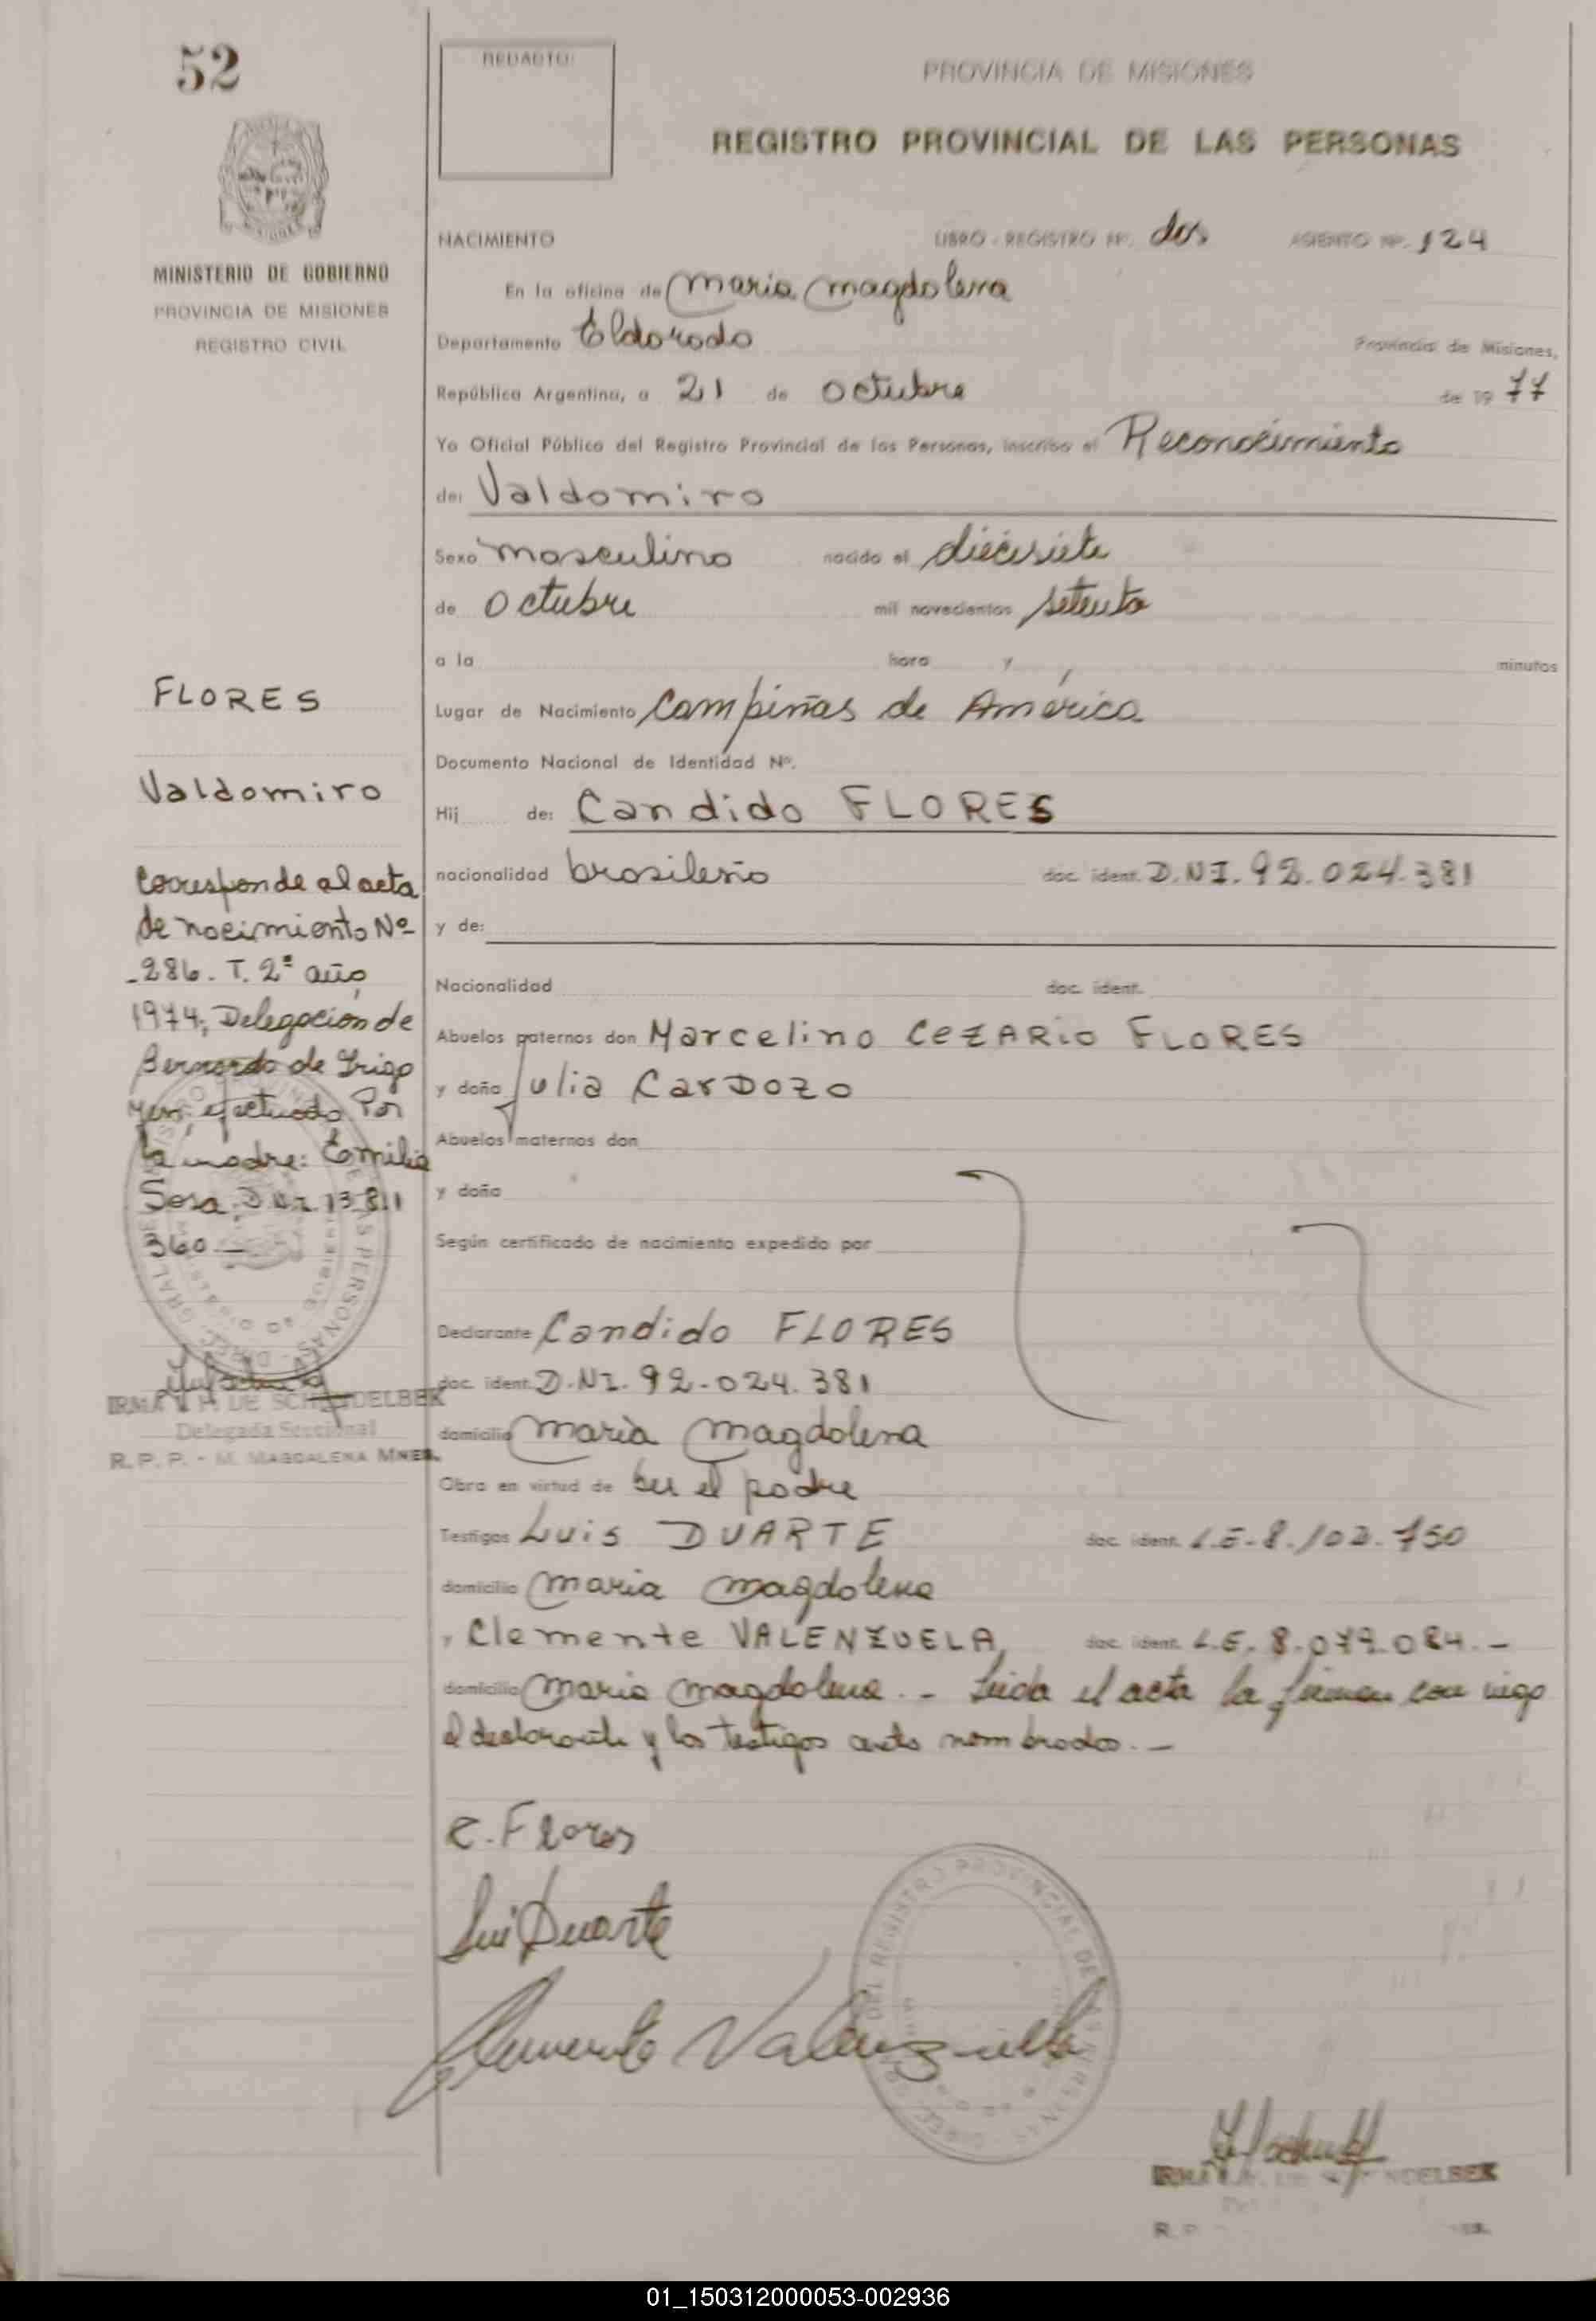 52
REDACTO:
PROVINCIA DE MISIONES
REGISTRO PROVINCIAL DE LAS PERSONAS
MINISTERIO DE GOBIERNO
PROVINCIA DE MISIONES
REGISTRO CIVIL
NACIMIENTO LIBRO - REGISTRO Nº. dos ASIENTO Nº. 124
En la oficina de Maria Magdalena
Departamento Eldorado Provincia de Misiones,
República Argentina, a 21 de octubre de 1977
Yo Oficial Público del Registro Provincial de las Personas, inscribo el Reconocimiento
de: Valdomiro
Sexo masculino nacido el diecisiete
de octubre mil novecientos setenta
a la hora y minutos
Lugar de Nacimiento Campiñas de América
Documento Nacional de Identidad Nº.
Hij de: Candido FLORES
nacionalidad brasileño doc. ident. D.N.I. 92.024.381
y de:
Nacionalidad doc. ident.
Abuelos paternos don Marcelino CEZARIO FLORES
y doña Julia CARDOZO
Abuelos maternos don
y doña
Según certificado de nacimiento expedido por
Declarante Candido FLORES
doc. ident. D.NI. 92-024.381
domicilio María Magdalena
Obra en virtud de ser el padre
Testigos Luis DUARTE doc. ident. L.E-8.102.750
domicilio Maria Magdalena
y Clemente VALENZUELA, doc. ident. L.E. 8.079.084.-
domicilio Maria Magdalena.- Leida el acta la firman con migo
el declarante y los testigos antes nombrados.-
FLORES
Valdomiro
Corresponde al acta
de nacimiento Nº
-286. T. 2º año
1974, Delegación de
Bernardo de Irigo
yen, efectuada Por
la madre: Emilia
Sosa, D.N.I. 13.811
360.-
IRMA DE SCHENDELBEK
Delegada Seccional
R.P.P. - M. MAGDALENA MNES.
C. Flores
Luis Duarte
Clemente Valenzuela
DEL REGISTRO PROVINCIAL DE LAS PERSONAS
IRMA DE SCHENDELBEK
R. P.
01_150312000053-002936